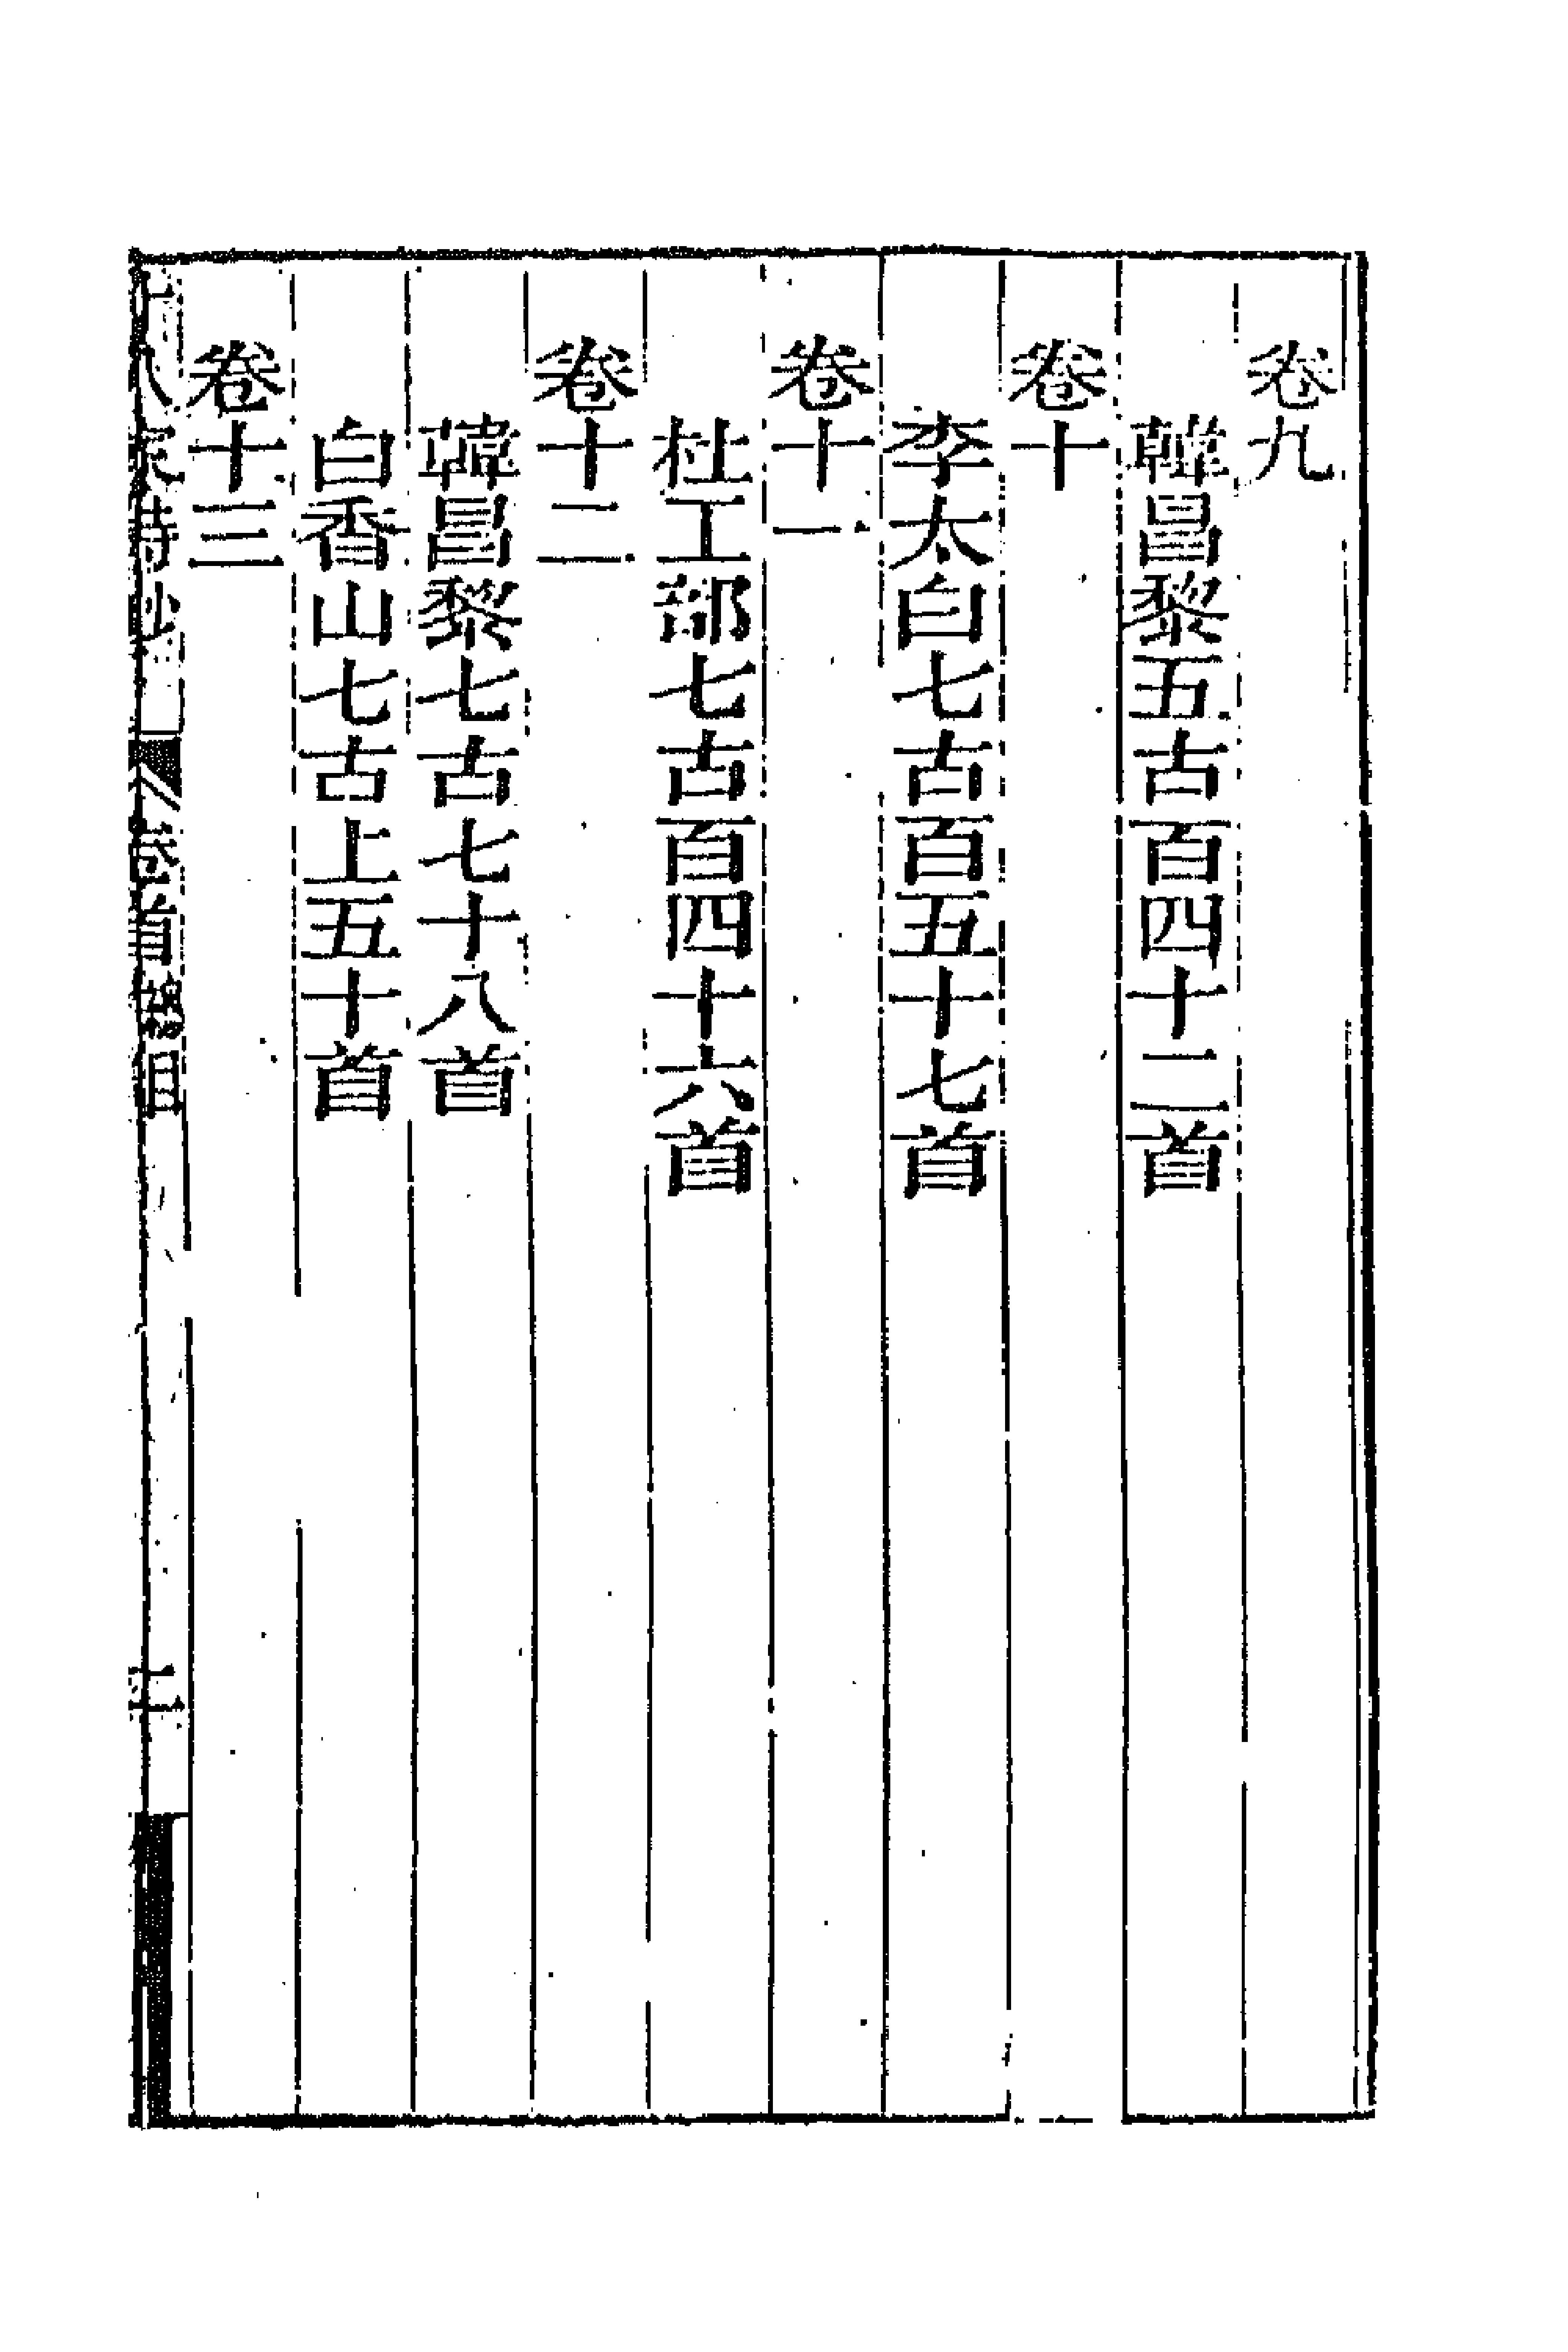 卷九
韓昌黎五古百四十二首
卷十
李太白七古百五十七首
卷十一
杜工部七古百四十六首
卷十二
韓昌黎七古七十八首
白香山七古上五十首
卷十三
十八家詩鈔 卷首總目